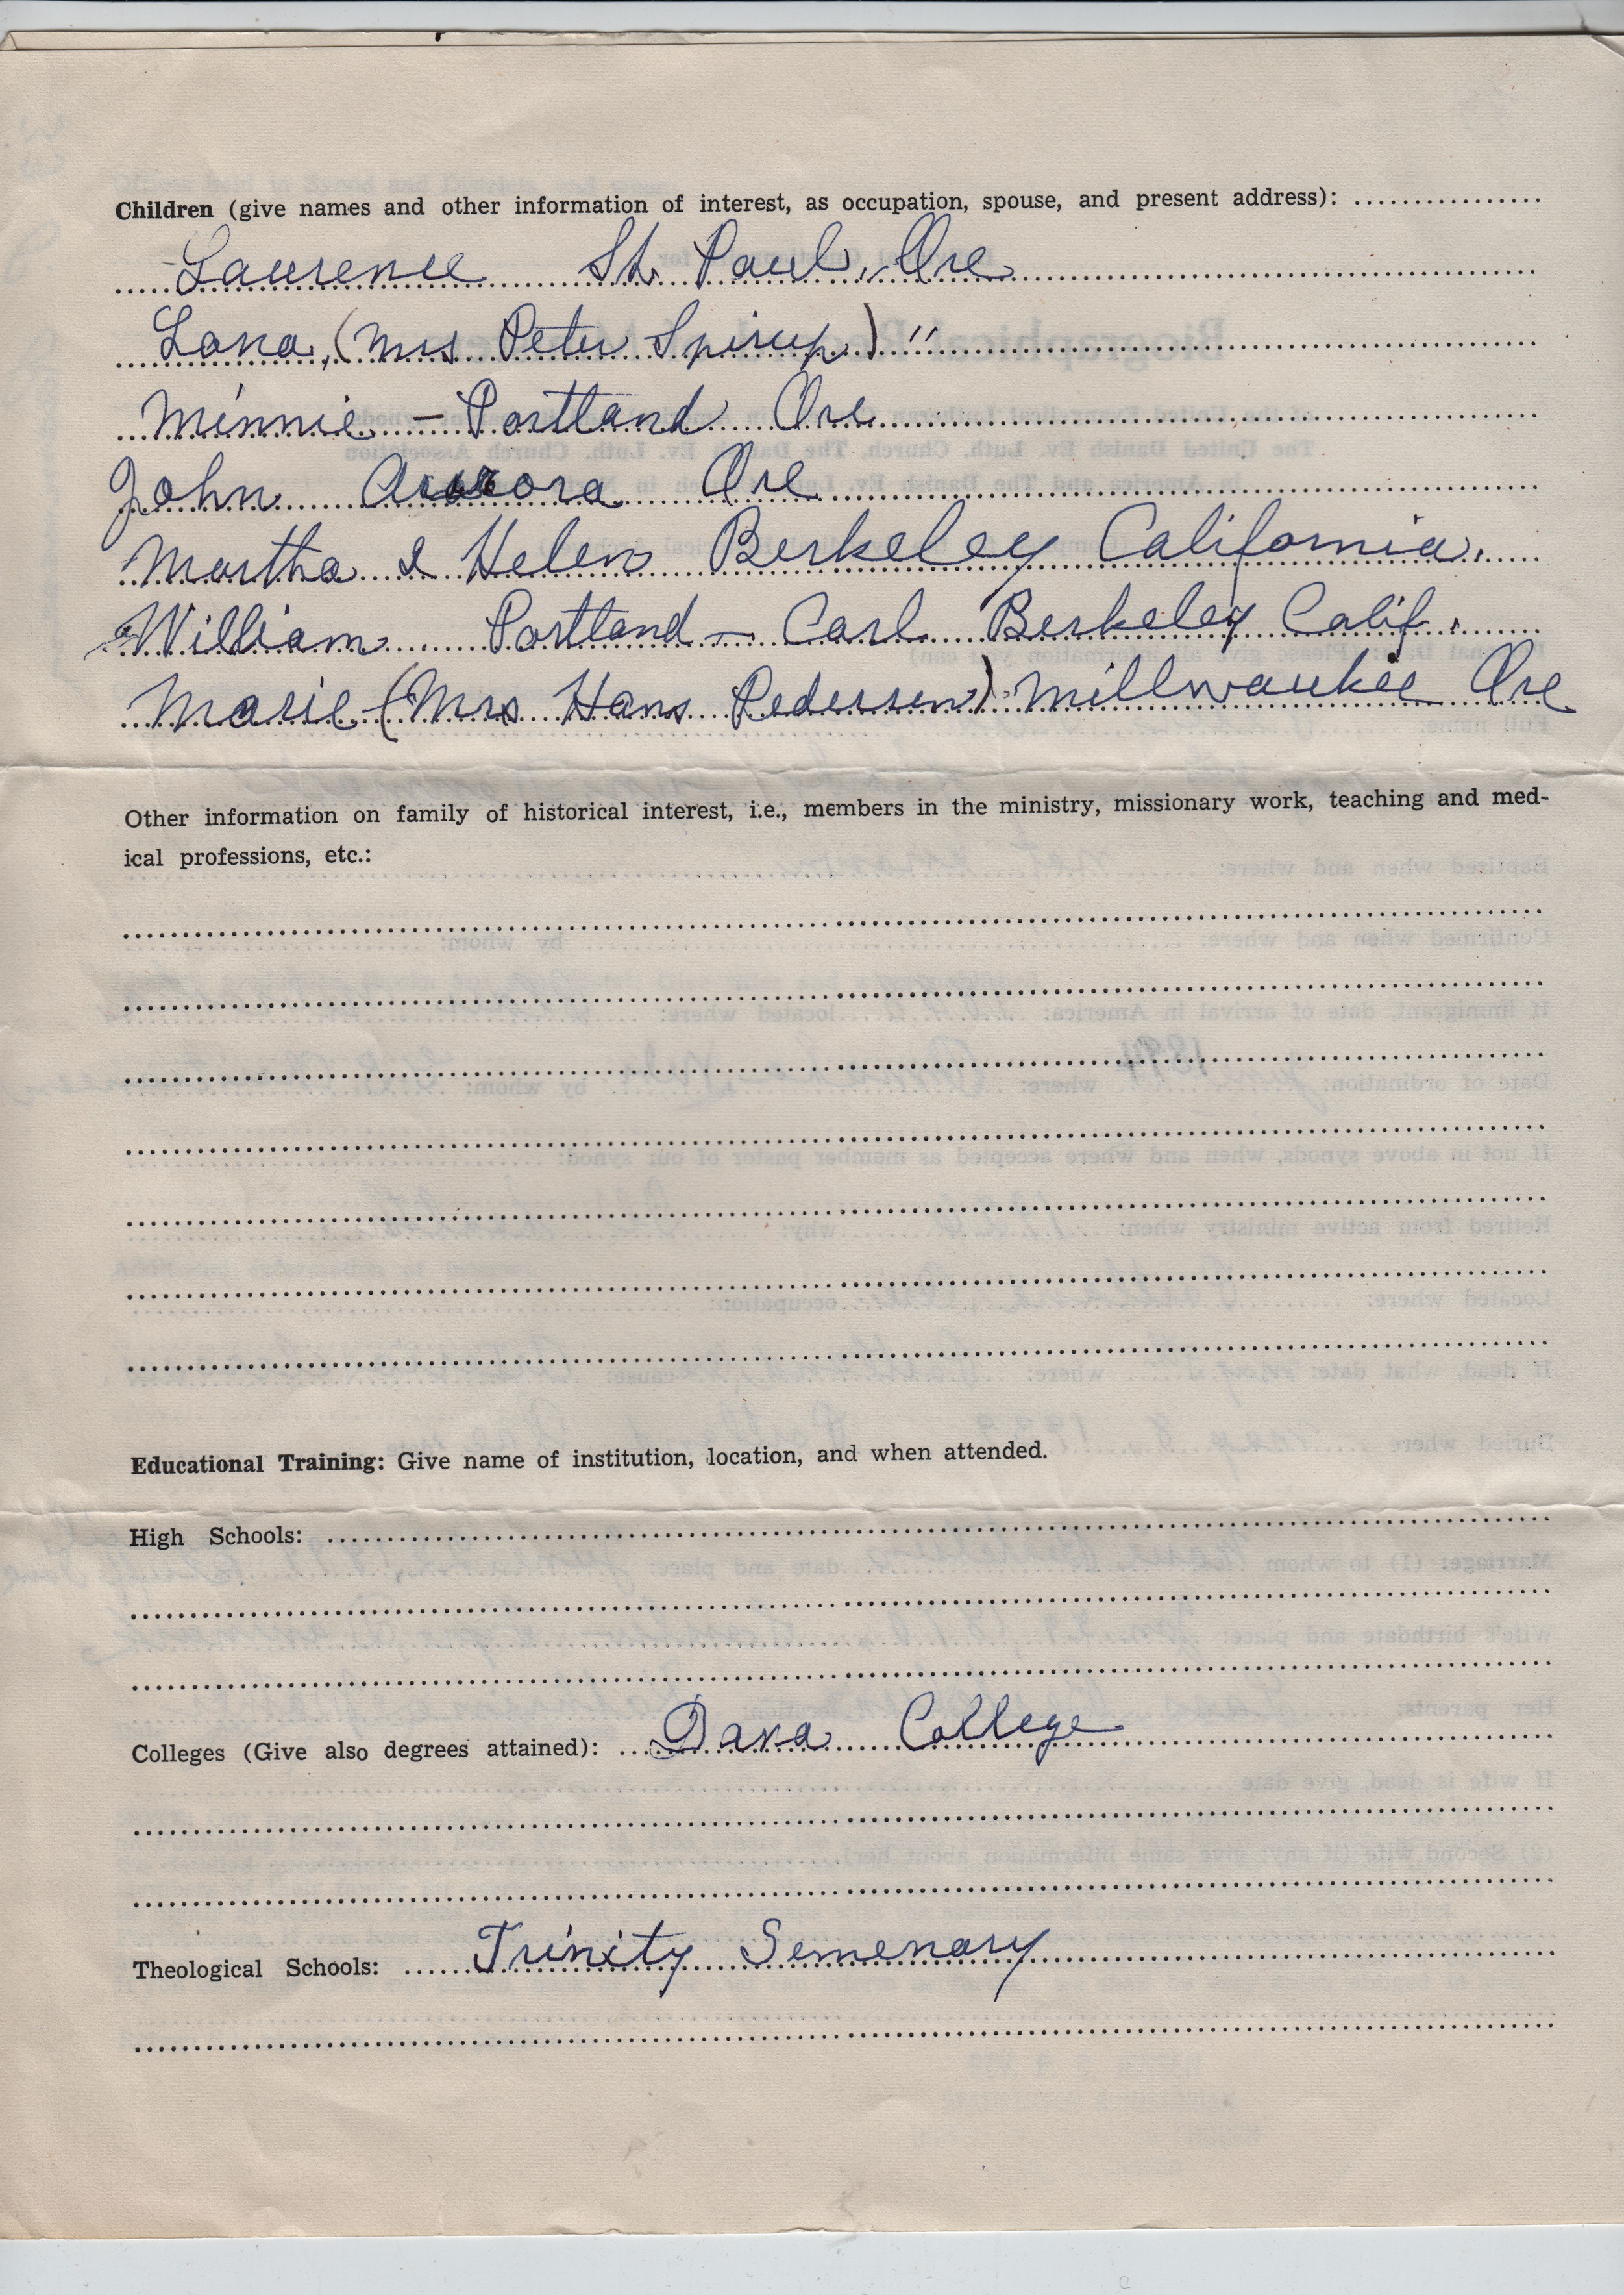 Children (give names and other information of interest, as occupation, spouse, and present address):
Laurence St. Paul, Ore
Lona, (Mrs Peter Spirup) "
Minnie - Portland Ore
John Aurora Ore
Martha & Helen Berkeley California.
William Portland - Carl Berkeley Calif.
Marie (Mrs Hans Pedersen) Millwaukie Ore
Other information on family of historical interest, i.e., members in the ministry, missionary work, teaching and med-
ical professions, etc.:
Educational Training: Give name of institution, location, and when attended.
High Schools:
Colleges (Give also degrees attained): Dana College
Theological Schools: Trinity Semenary